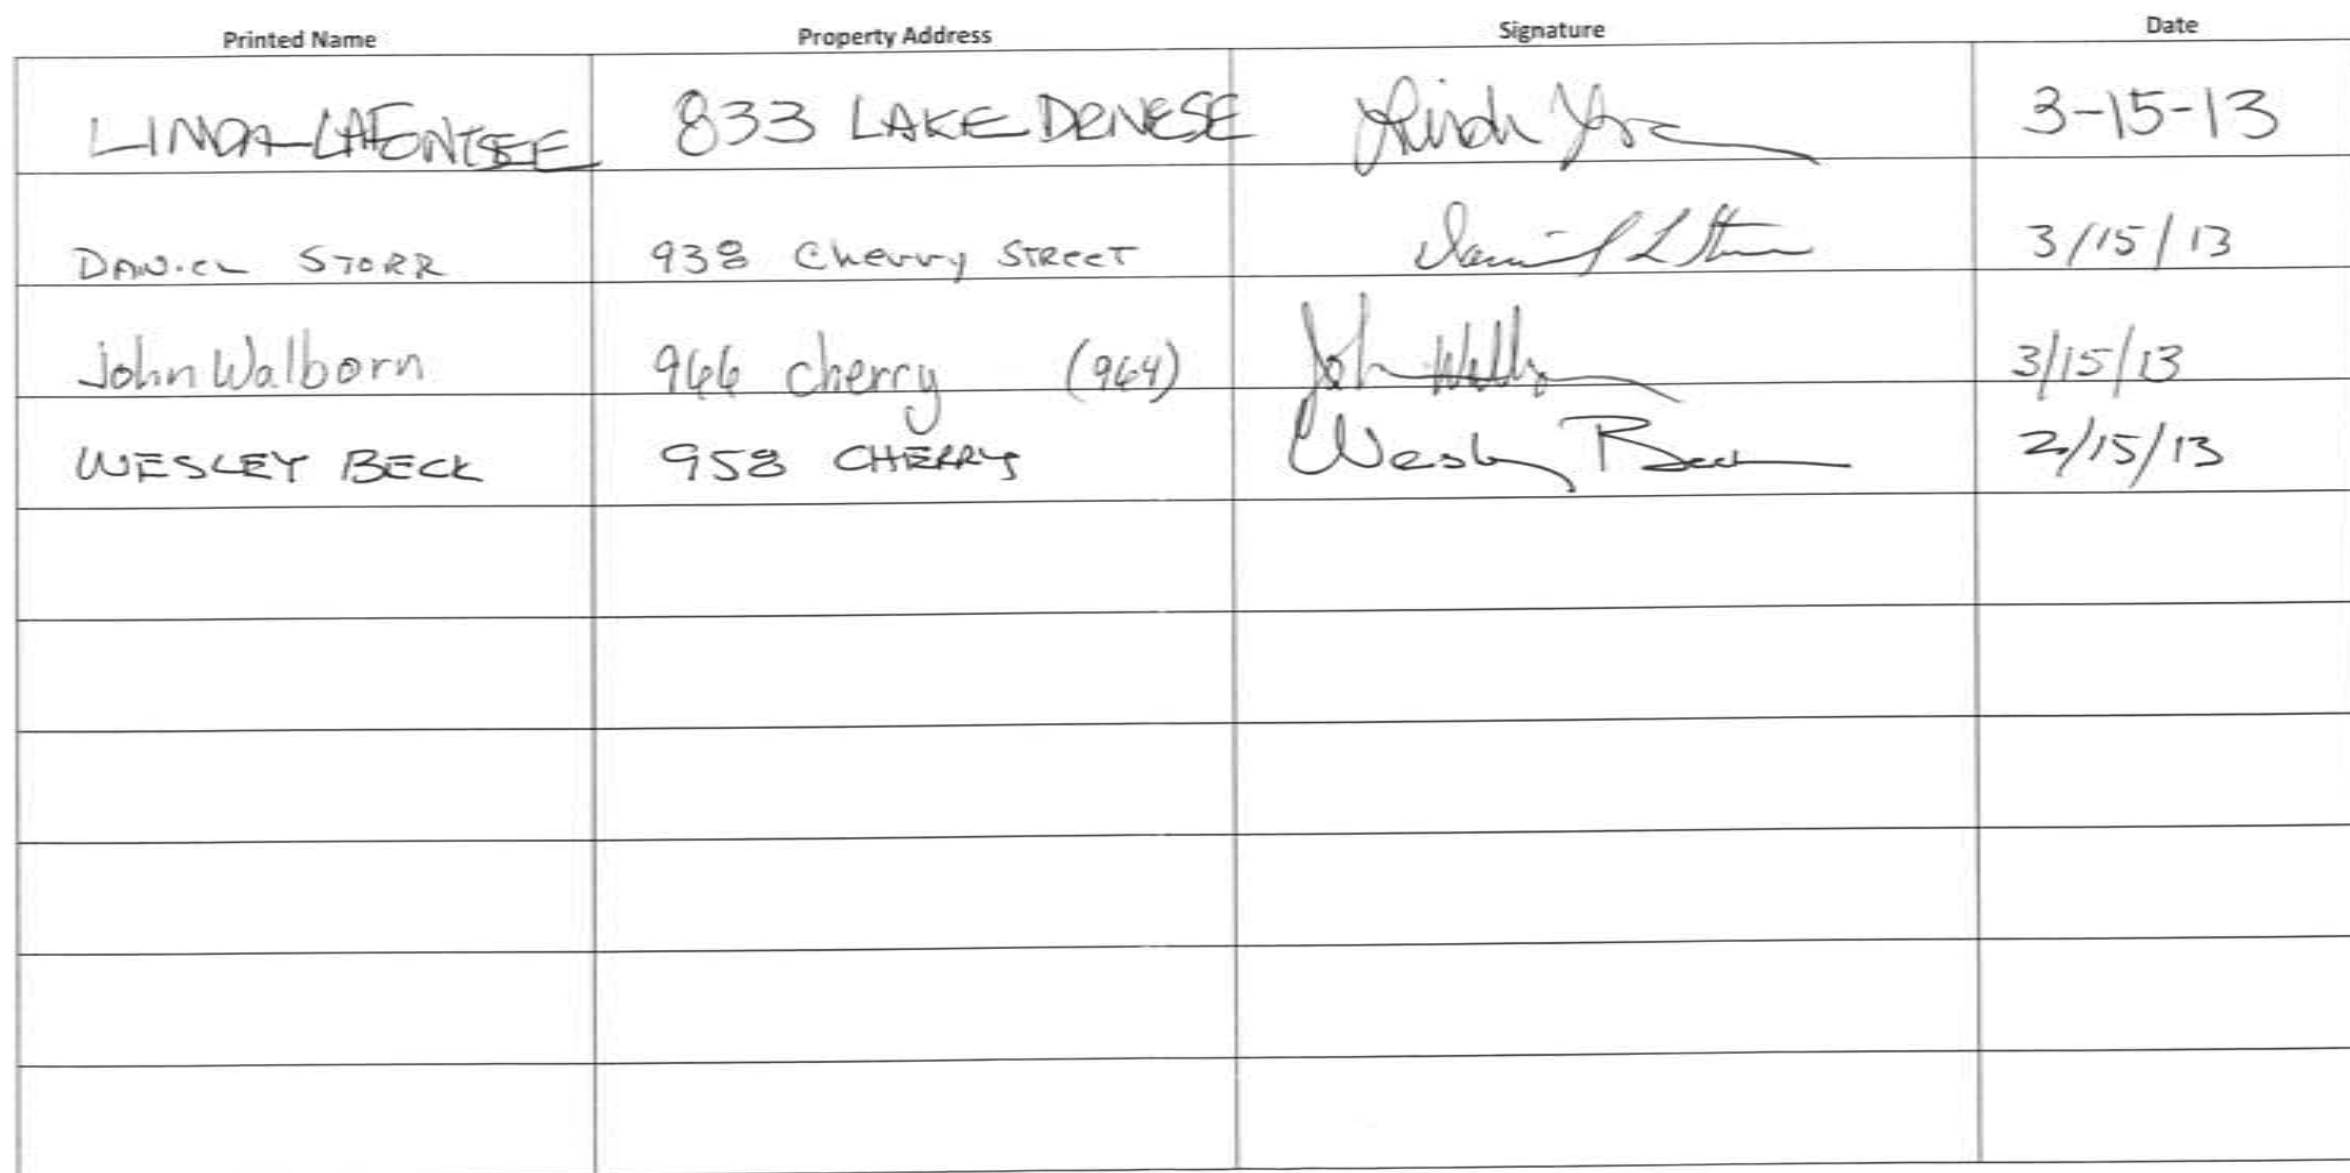 Printed Name Property Address Signature Date
LINDA 833 LAKE DENESE Linda 3-15-13
DANIEL STORR 938 Cherry STREET Daniel L Storr 3/15/13
John Walborn 966 cherry (964) John 3/15/13
WESLEY BECK 958 CHERRY Wesley Beck 2/15/13